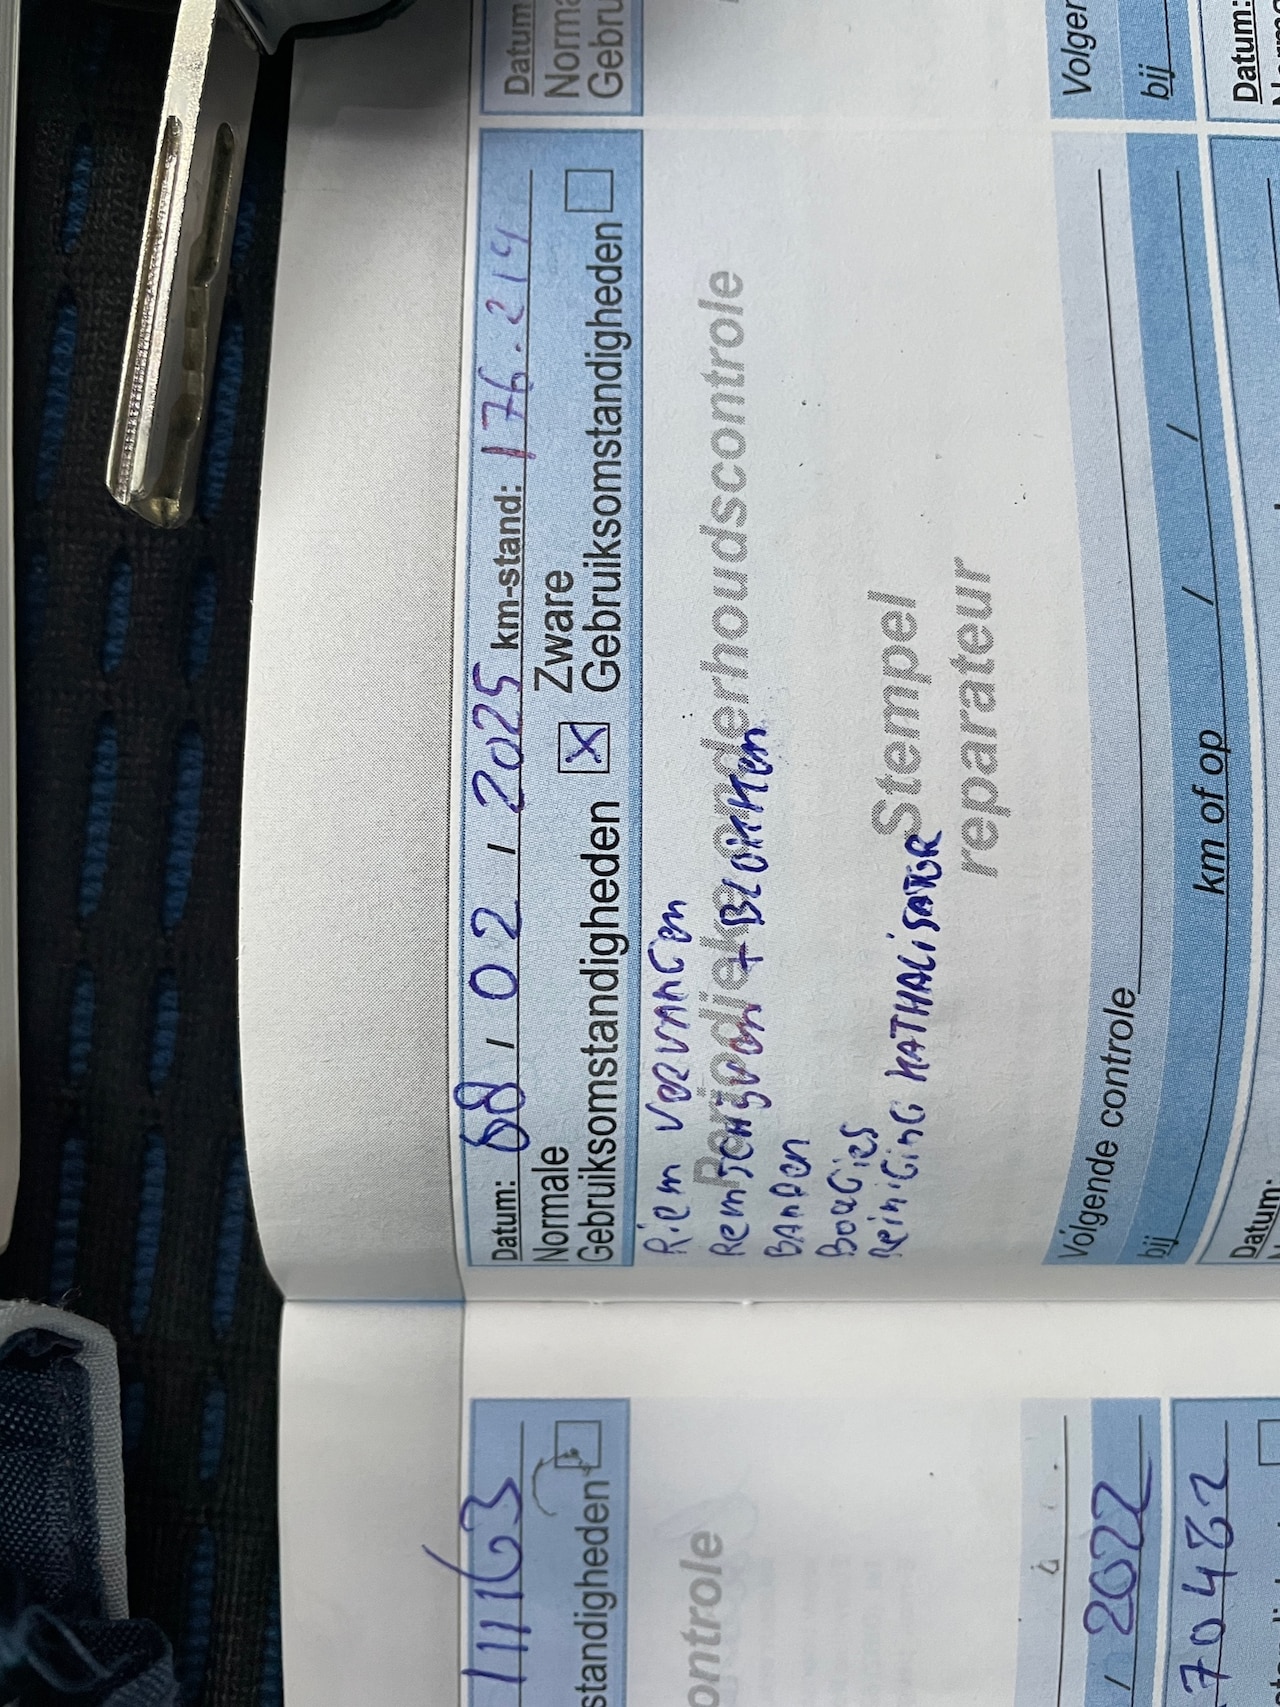 Datum
Norma
Gebru
Datum: 08 / 02 / 2025 km-stand: 176.219
Normale Zware
Gebruiksomstandigheden X Gebruiksomstandigheden
Periodieke onderhoudscontrole
Riem vervangen
Remschijven + Blokken
Banden
Bougies
Reiniging KATHALisator
Stempel
reparateur
Volgende controle
bij km of op / /
Datum:
Volgen
bij
Datum:
11163
standigheden
ontrole
/ 2022
70482